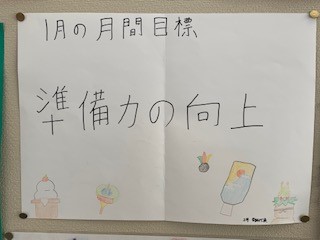 1月の月間目標
準備力の向上